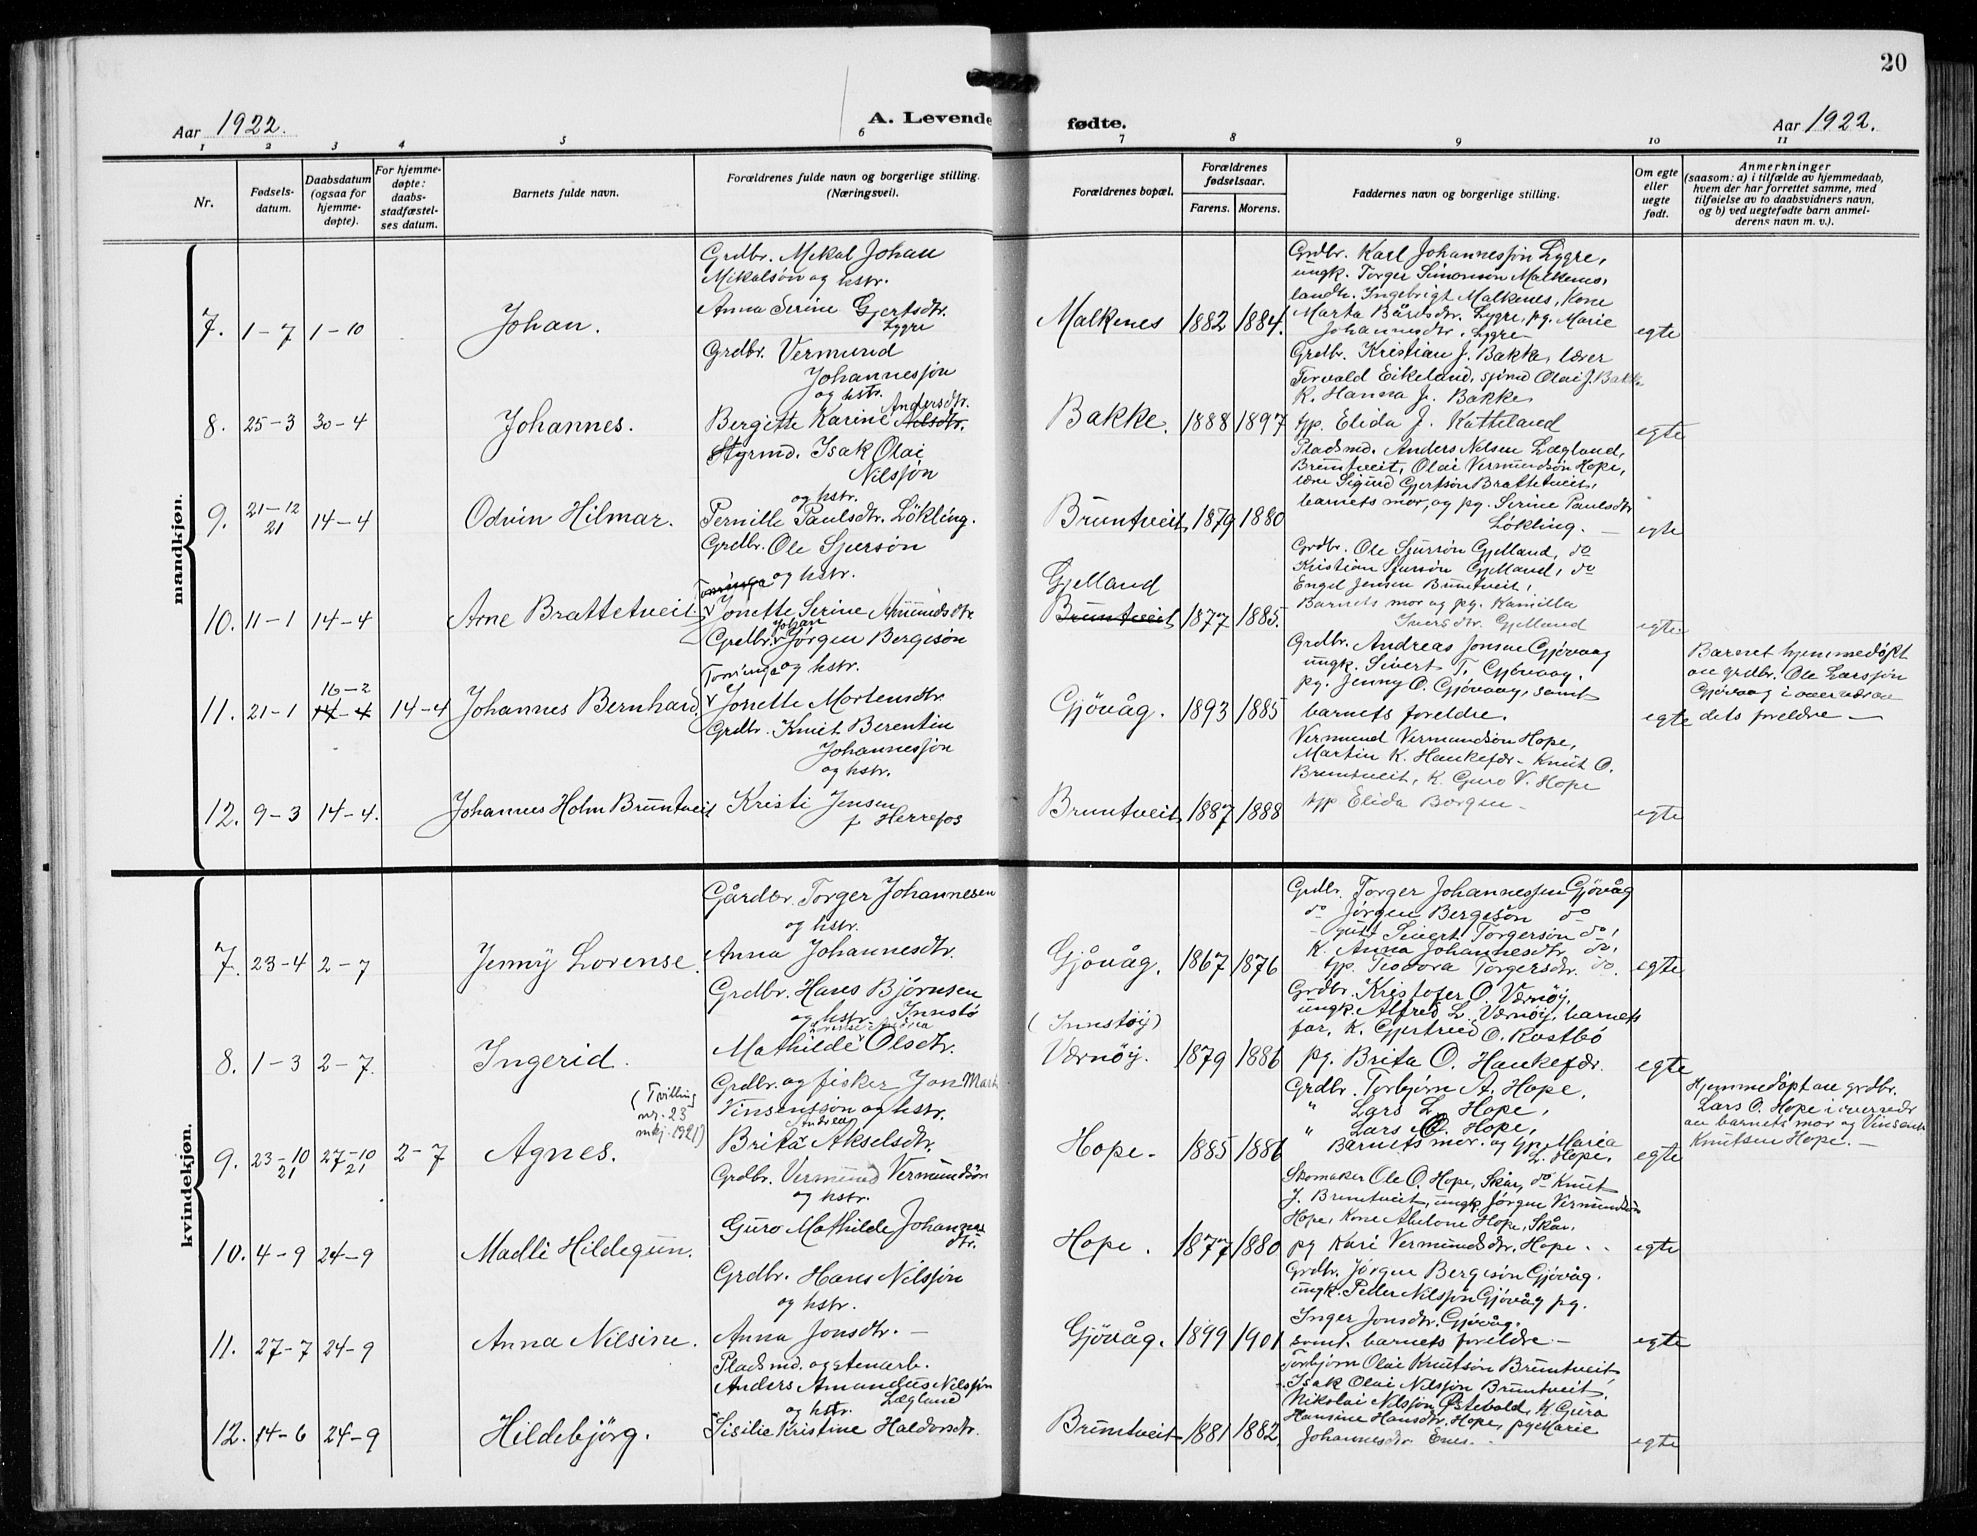 20
Aar 1922.
A. Levende fødte.
Aar 1922.
1 2 3 4 5 6 7 8 9 10 11
Nr.
Fødsels-
datum.
Daabsdatum
(ogsaa for
hjemme-
døpte).
For hjemme-
døpte:
daabs-
stadfæstel-
ses datum.
Barnets fulde navn.
Forældrenes fulde navn og borgerlige stilling.
(Næringsvei).
Forældrenes bopæl.
Forældrenes
fødselsaar.
Farens. Morens.
Faddernes navn og borgerlige stilling.
Om egte
eller
uegte
født.
Anmerkninger
(saasom: a) i tilfælde av hjemmedaab,
hvem der har forrettet samme, med
tilføielse av to daabsvidners navn,
og b) ved uegtefødte barn anmel-
derens navn m. v.).
mandkjøn.
7. 1-7 1-10 Johan.
Grdbr. Mikal Johan
Mikalsøn og hstr.
Anna Serine Gjertsdtr.
Lygre
Malkenes 1882 1884.
Grdbr. Karl Johannesson Lygre,
ungk. Torger Simonsen Malkenes,
landh. Ingebrigt Malkenes, Kone
Marta Bårdsdtr. Lygre, pg. Marie
Johannesdtr. Lygre
egte
8. 25-3 30-4 Johannes.
Grdbr. Vermund
Johannesson
og hstr.
Andersdtr.
Bergitte Karine Nilsdtr.
Bakke. 1888 1897
Grdbr. Kristian J. Bakke, lærer
Torvald Eikeland, sjømd Olai J. Bakke
K. Hanna J. Bakke,
tjp. Elida J. Katteland
egte
9. 21-12 21 14-4 Odvin Hilmar.
Styrmd. Isak Olai
Nilsson
og hstr.
Pernille Paulsdtr. Løkling.
Bruntveit 1879 1880
Pladsmd. Anders Nilsen Lægland,
Bruntveit, Olai Vermundsøn Hope,
lærer Sigurd Gjertsøn Brattetveit,
barnets mor, og pg. Serine Paulsdtr
Løkling. -
egte
10. 11-1 14-4 Arne Brattetveit
Grdbr. Ole Sjursøn
og hstr.
Jonette Serine Amundsdtr.
Gjelland
Bruntveit 1877 1885.
Grdbr. Ole Sjursøn Gjelland, do
Kristian Sjursøn Gjelland, do
Engel Jensen Bruntveit,
Barnets mor og pg. Kamilla
Iversdtr. Gjelland
egte.
11. 21-1 16-2 14-4 14-4 Johannes Bernhard.
Johan
Grdbr. Jørgen Bergesøn
Torringa og hstr.
Jonette Mortensdtr.
Gjøvåg. 1893 1885
Grdbr. Andreas Jonsen Gjøvaag
ungk. Sivert T. Gjøvaag.
pg. Jenny O. Gjøvaag, samt
barnets foreldre.
egte
Barnet hjemmedøpt
av grdbr. Ole Larsson
Gjøvaag i overvær av
dets foreldre —
12. 9-3 14-4. Johannes Holm Bruntveit
Grdbr. Knut Berentin
Johannesson
og hstr.
Kristi Jensen
f. Herrefos
Bruntveit 1887 1888
Vermund Vermundsøn Hope,
Martin K. Haukefær - Knut O.
Bruntveit, K. Guro V. Hope
tjp. Elida Borgen -
egte
kvindekjøn.
7. 23-4 2-7 Jenny Lorense.
Gårdbr. Torger Johannesen
og hstr.
Anna Johannesdtr.
Gjøvåg. 1867 1876
Grdbr. Torger Johannessen Gjøvåg
do Jørgen Bergesøn do
gutt Sivert Torgersøn do,
K. Anna Johannesdtr. do,
tjp. Teodora Torgersdtr. do.
egte
8. 1-3 2-7. Ingerid.
Grdbr. Hans Bjørnsen
og hstr. Innstø
Mathilde Olsdtr.
(Innstøy)
Værnøy. 1879 1886
Grdbr. Kristofer O. Værnøy,
ungk. Alfred L. Værnøy, barnets
far, K. Gjertrud O. Rostbø
pg. Brita O. Haukefær.
egte
9. 23-10 21 27-10 21 2-7 Agnes.
(Tvilling
nr. 23
mkj. 1921)
Grdbr. og fisker Jon Mart
Vinsentsøn og hstr.
Andrea
Brita Akselsdtr.
Hope. 1885 1886
Grdbr. Torbjørn A. Hope,
" Lars L. Hope,
" Lars O. Hope,
Barnets mor. og tjp. Maria
L. Hope,
egte
Hjemmedøpt av grdbr.
Lars O. Hope i overvær
av barnets mor og Vinsent
Knutsen Hope. —
10. 4-9 24-9 Madli Hildegun.
Grdbr. Vermund Vermundsøn
og hstr.
Guro Mathilde Johannes
dtr.
Hope. 1877 1880
Skomaker Ole O. Hope, Skår, do Knut
J. Bruntveit, ungk. Jørgen Vermundsøn
Hope, Kone Abelone Hope, Skår.
pg Kari Vermundsdtr. Hope. .
egte
11. 27-7 24-9 Anna Nilsine.
Grdbr. Hans Nilsson
og hstr.
Anna Jonsdtr. —
Gjøvåg. 1899 1901
Grdbr. Jørgen Bergesøn Gjøvåg.
ungk. Peder Nilsson Gjøvåg pg.
Inger Jonsdtr. Gjøvåg.
samt. barnets foreldre. -
egte
12. 14-6 24-9 Hildebjørg.
Pladsmd. og stenarb.
Anders Amandus Nilsson
Lægland
og hstr.
Sisilie Kristine Haldorsdtr.
Bruntveit 1881 1882.
Torbjørn Olai Knutsøn Bruntveit
Isak Olai Nilsson Bruntveit,
Nikolai Nilsson Østebold, K. Guro
Hansine Hansdtr. Hope, pg Marie
Johannesdtr. Enes. .
egte